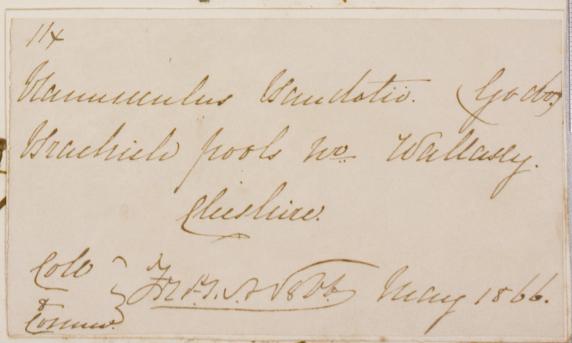 114
Ranunculus Baudotii. (Godr)
Brackish pools nr. Wallasey.
Cheshire.
Coll
& Commt. May 1866.